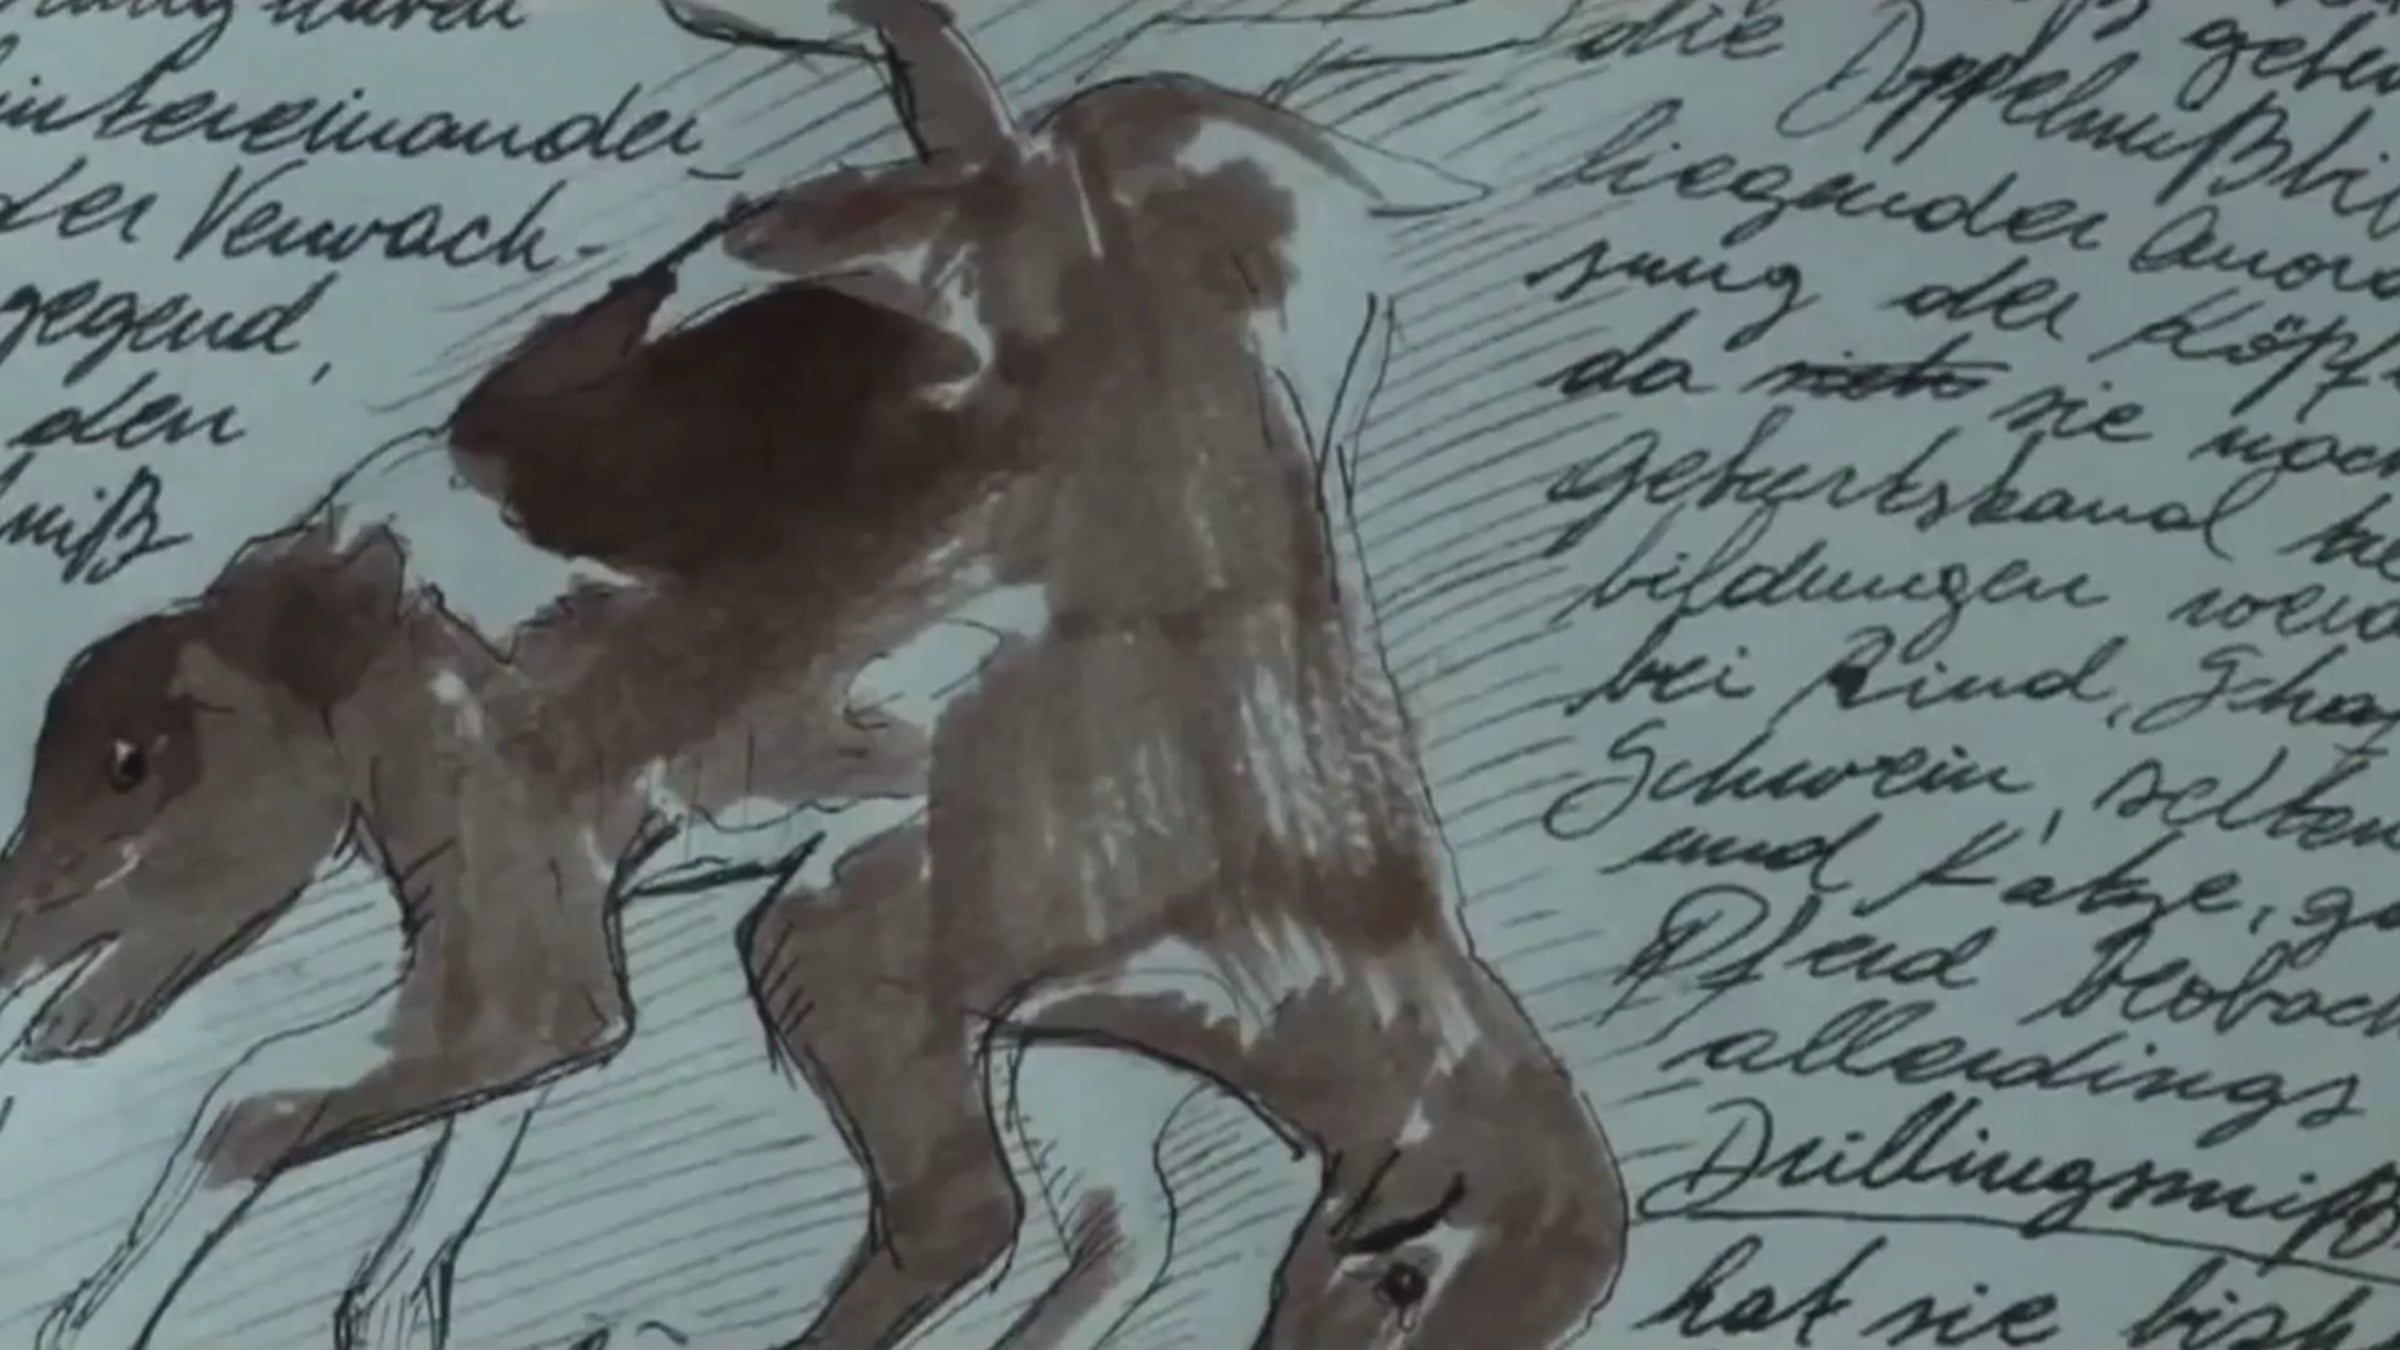 hintereinander
der Verwach-
gegend,
den
die Doppelmißbil
liegender Anord
sung der Köpf
da sie noch
Geburtskanal
bildungen
bei Rind, Schaf
Schwein, selten
und Katze,
Pferd beobach
allerdings
Drillingsmiß
hat sie bish